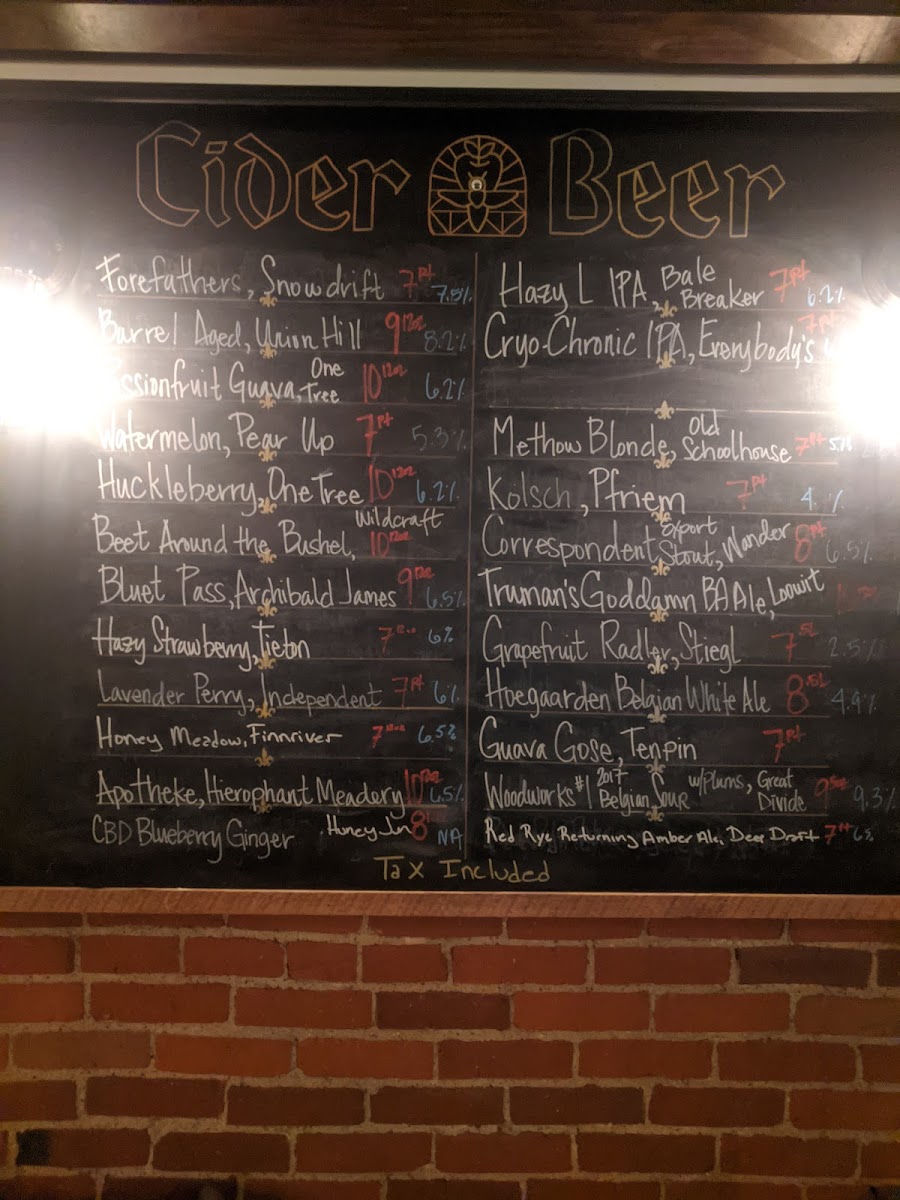 Cider Beer
Forefathers, Snowdrift 7 pt 7.5%
Barrel Aged, Union Hill 9 12oz 8.2%
Passionfruit Guava, One Tree 10 12oz 6.2%
Watermelon, Pear Up 7 pt 5.3%
Huckleberry, One Tree 10 12oz 6.2%
Beet Around the Bushel, Wildcraft 10 12oz
Bluet Pass, Archibald James 9 12oz 6.5%
Hazy Strawberry, Tieton 7 6%
Lavender Perry, Independent 7 pt 6%
Honey Meadow, Finnriver 7 6.5%
Apotheke, Hierophant Meadery 10 12oz 6.5%
CBD Blueberry Ginger, Honey Jun 8 NA
Hazy L IPA, Bale Breaker 7 pt 6.2%
Cryo-Chronic IPA, Everybody's 7 pt
Methow Blonde, Old Schoolhouse 7 pt 5%
Kölsch, Pfriem 7 pt 4. %
Correspondent Export Stout, Wander 8 pt 6.5%
Truman's Goddamn BA Ale, Loowit
Grapefruit Radler, Stiegl 7 .5L 2.5%
Hoegaarden Belgian White Ale 8 .5L 4.9%
Guava Gose, Tenpin 7 pt
Woodworks #1 2017 Belgian Sour w/Plums, Great Divide 9 9.3%
Red Rye Returning Amber Ale, Dear Draft 7 pt 6%
Tax Included